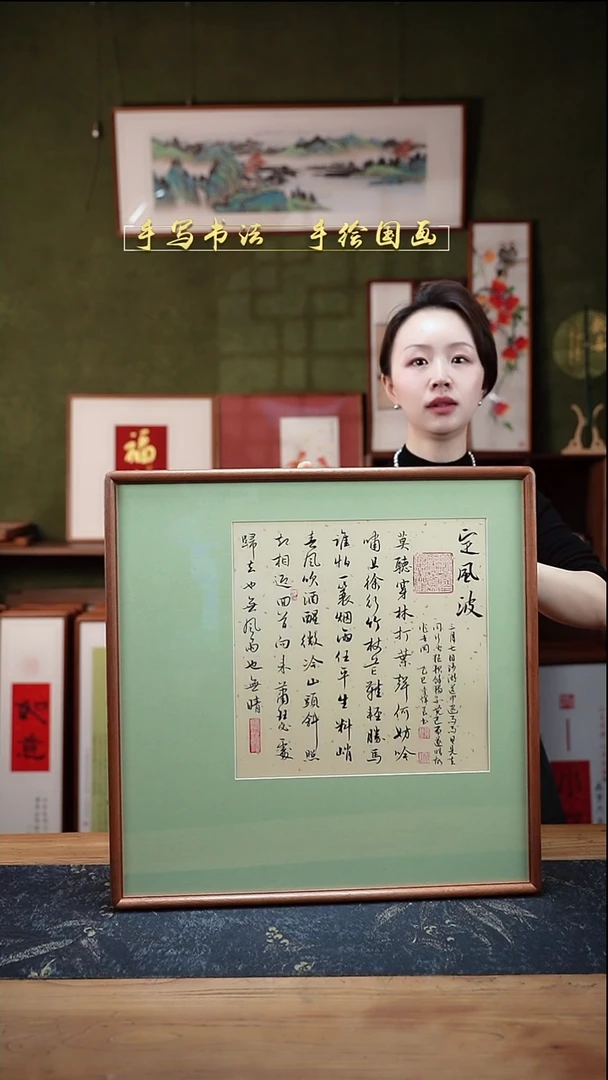 手写书法 手绘国画
福
定風波
三月七日沙湖道中遇雨雨具先去
同行皆狼狽余獨不覺已而遂晴故
莫聽穿林打葉聲何妨吟
嘯且徐行竹杖芒鞋輕勝馬
誰怕一蓑烟雨任平生料峭
春風吹酒醒微冷山頭斜照
却相迎回首向来蕭瑟處
歸去也無風雨也無晴
如意